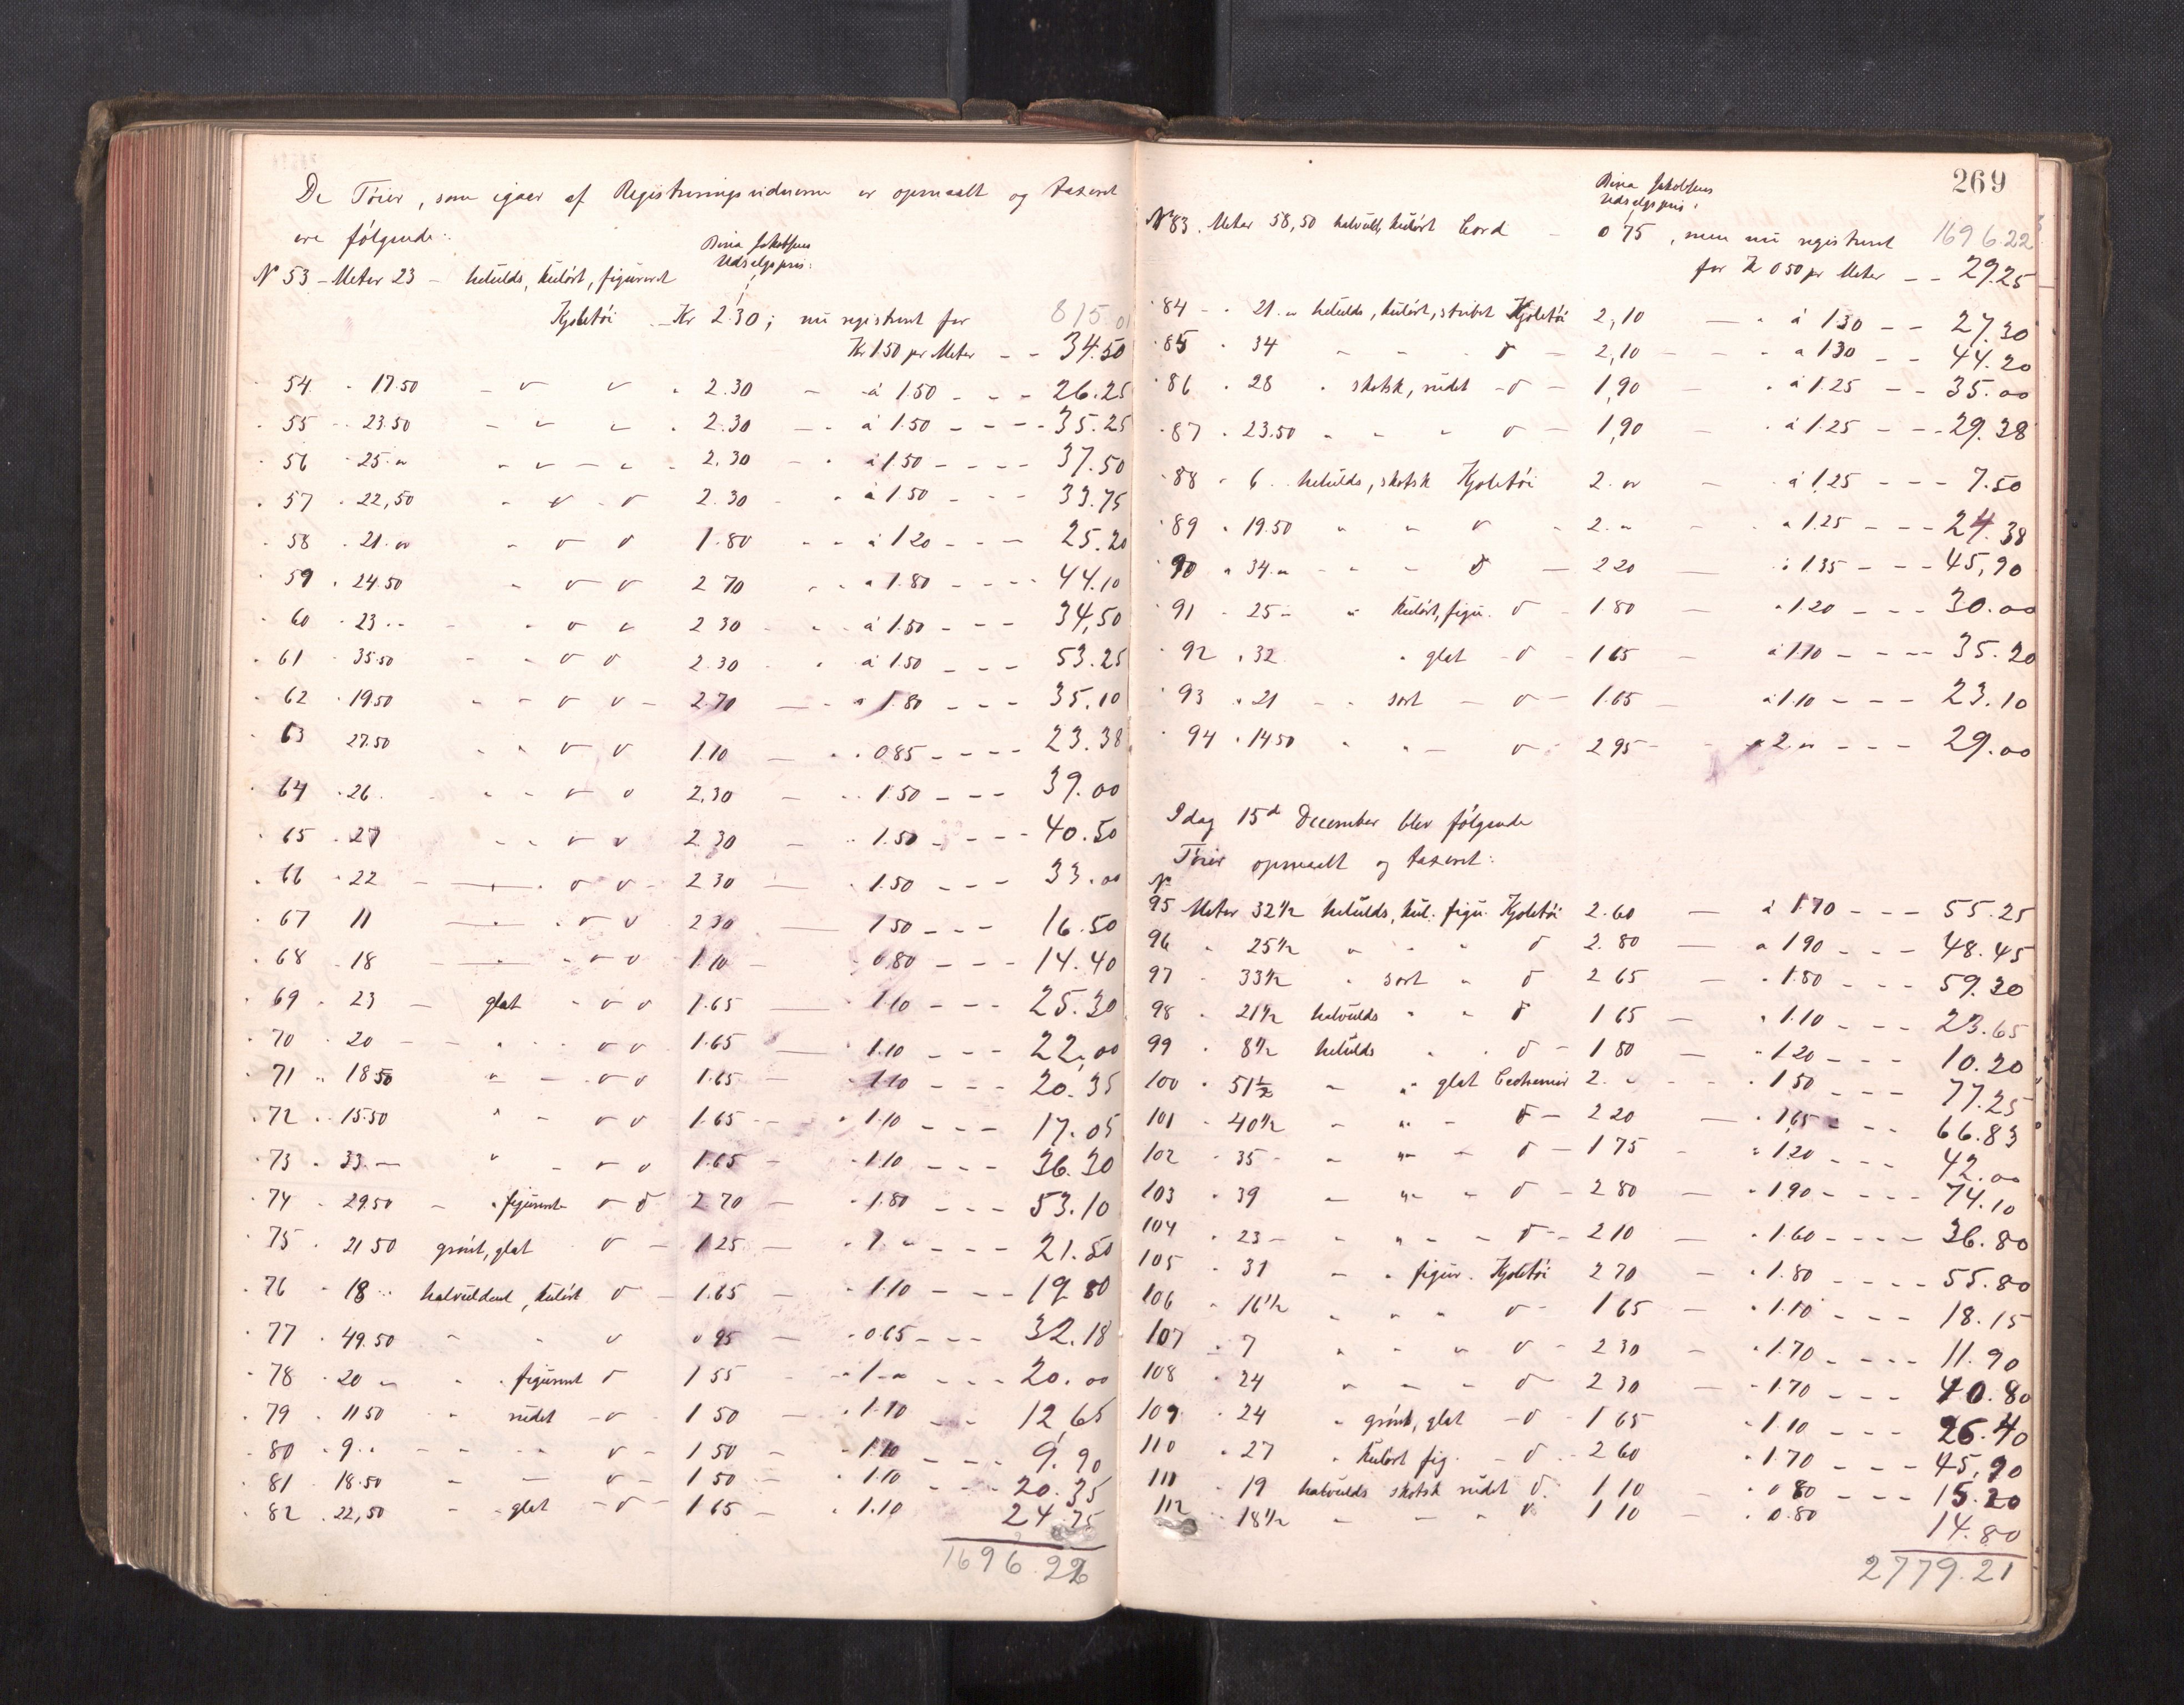 De Tøier, som igaar af Registreringsvidnerne er opmaalt og taxeret
ere følgende:
Dina Jakobsens
Udsalgspris:
N 53 - Meter 23 - heluld, kulørt, figureret
Kjoletøi - Kr 2.30; nu registreret for 815.01
Kr 1.50 pr Meter - - 34.50
" 54 " 17.50 - v v " 2.30 - à 1.50 - - - 26.25
" 55 - 23.50 - v v " 2.30 - " à 1.50 - - - 35.25
" 56 " 25." " v - v " 2.30 - " à 1.50 - - - 37.50
" 57 " 22,50 " v v 2.30 - " à 1.50 - - - 33.75
" 58 " 21." " v v 1.80 " " à 1.20 - - - 25.20
" 59 " 24.50 " v v 2 70 " " à 1.80 - - - 44.10
" 60 " 23 " " " v v 2 30 " " à 1.50 - - - 34,50
" 61 " 35.50 " " v v 2.30 " " à 1.50 - - - 53.25
" 62 " 19.50 " " v v - 2.70 - " " 1.80 - - - 35.10
" 63 27.50 " " v v 1.10 - " " 0.85 - - - 23.38
" 64 " 26. " " v v 2,30 - " 1.50 - - - 39.00
" 65 " 27 " " v v 2.30 - " 1.50 - - - 40.50
" 66 " 22 - " v v - 2 30 - " 1.50 - - - 33.00
" 67 11 - " v v 2 30 - 1 50 - - - 16.50
" 68 " 18 - " v v 1.10 - " 0.80 - - - 14.40
" 69 " 23 - glat " v v 1.65 - " 1.10 - - - 25.30
" 70 " 20 - - " " v v 1.65 - " 1.10 - - - 22,00
" 71 " 18 50 " - v v 1.65 - " 1.10 - - - 20.35
" 72 " 15.50 " - v v 1.65 - " 1.10 - - - 17.05
" 73 " 33.- " - v v 1.65 - " 1.10 - - - 36.30
" 74 " 29.50 - " figureret v v 2 70 - " 1.80 - - - 53.10
" 75 " 21 50 grønt, glat v - 1 25 - " 1 " - - - 21.50
" 76 " 18 " halvuldent, kulørt v - 1.65 - " 1.10 - - - 19 80
" 77 " 49.50 " " v 0 95 - " 0.65 - - - 32.18
" 78 " 20 " " " figureret v 1 55 - " 1 - " - - - 20.00
" 79 " 11 50 " rudet - v - 1 50 - " 1.10 - - 12,65
" 80 " 9 " - - " " v - 1 50 - " 1.10 - - - 9.90
" 81 " 18.50 " - v - 1 50 - " 1.10 - - - 20.35
" 82 " 22,50 - " glat - v - 1 65 - " 1.10 24.75
1696.22
269
Dina Jakobsens
Udsalgspris:
N 83. Meter 58,50 halvuld, kulørt Cord - 0 75, men nu registreret 1696.22
for Kr 0 50 pr Meter - - 29.25
" 84 - " 21. " heluld, kulørt, stribet Kjoletøi 2,10 - " à 1.30 - - 27.30
" 85 " 34 " " " v - 2,10 - " à 1 30 - - 44.20
" 86 " 28 " skotsk, rudet - v - 1,90 - " à 1.25 - - 35.00
" 87 " 23.50 " " " v - 1,90 " à 1.25 - - - 29.38
" 88 " 6 " heluld, skotsk Kjoletøi 2. " - " à 1,25 - - - 7.50
" 89 " 19.50 " " v " 2." " " à 1.25 - - - 24.38
" 90 " 34." - " - v - 2 20 - " à 1.35 - - - 45,90
" 91 " 25 - " kulørt, figu. v - 1.80 - " 1.20 - - - 30.00
" 92 " 32 " glat - v - 1 65 - à 1.10 - - - 35.20
" 93 " 21 - " sort - v - 1.65 - à 1.10 - - - 23.10
" 94 " 14 50 " " - v - 2 95 - " à 2. " - - - 29.00
Idag 15d December blev følgende
Tøier opmaalt og taxeret:
N
95 Meter 32 1/2 heluld, kul. figu. Kjoletøi 2.60 - à 1.70 - - - 55.25
96 " 25 1/2 " " " v 2.80 - à 1 90 - - - 48.45
97 " 33 1/2 " sort " v 2 65 - " 1.80 - - - 59.30
98 " 21 1/2 halvuld " " v 1 65 - " 1.10 - - - 23.65
99 " 8 1/2 heluld " " v - 1 80 - " 1 20 - - - 10.20
100 " 51 1/2 - " glat Cashemir 2. " - " 1 50 - - - 77.25
101 " 40 1/2 - " - v - 2 20 - " 1,65 - - - 66.83
102 " 35 - - " - v - 1 75 - " 1 20 - - - 42.00
103 " 39 - " - v - 2 80 - " 1.90 - - - 74.10
104 " 23 - " " - v - 2 10 - " 1.60 - - - 36.80
105 " 31 - " figur. Kjoletøi 2 70 - " 1.80 - - - 55.80
106 " 16 1/2 " " " v - 1 65 - " 1.10 - - - 18.15
107 " 7 " " " v - 2 30 - " 1.70 - - - 11.90
108 " 24 " " " v - 2 30 - " 1.70 - - - 40.80
109 " 24 " grønt, glat - v - 1 65 - " 1 10 - - - 26.40
110 " 27 " kulørt fig. - v - 2 60 " 1 70 - - - 45,90
111 " 19 halvuld skotsk rudet v. 1 10 - " 0 80 - - - 15.20
112 " 18 1/2 - - " v 1 10 - " 0.80 14.80
2779.21